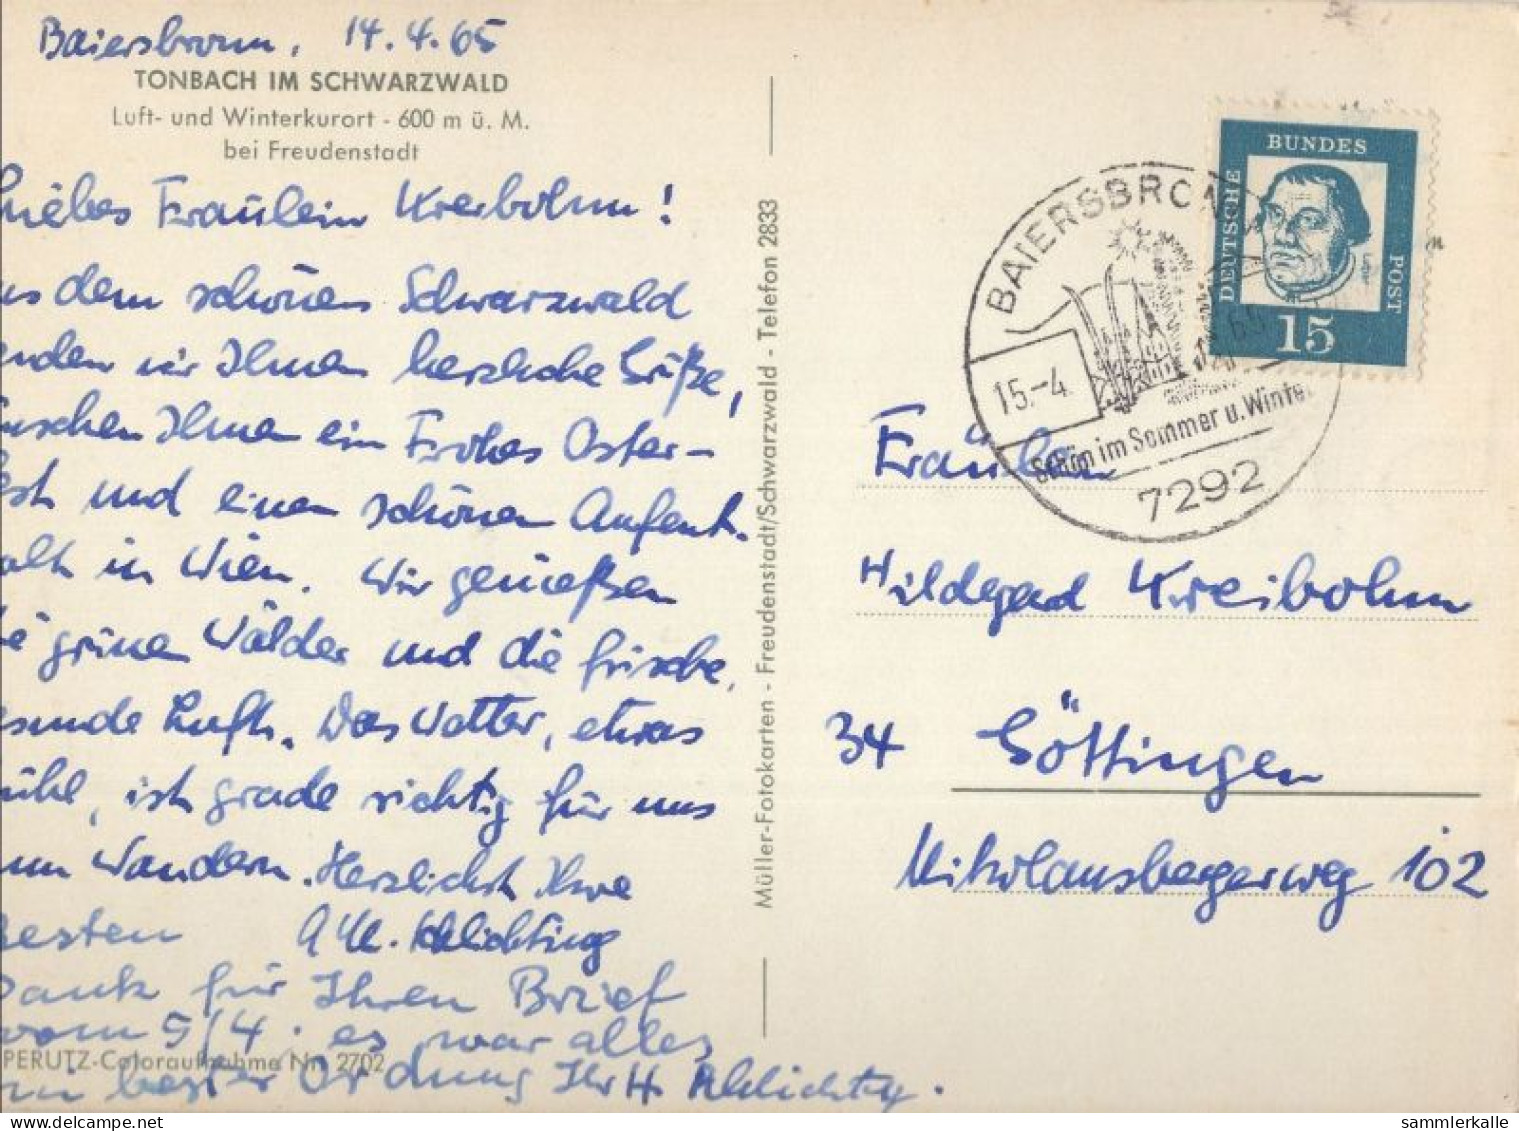 Baiersbronn, 14.4.65
TONBACH IM SCHWARZWALD
Luft- und Winterkurort - 600 m ü. M.
bei Freudenstadt
Liebes Fräulein Kreibohm!
us dem schönen Schwarzwald
enden wir Ihnen herzliche Grüße,
ünschen Ihnen ein Frohes Oster-
est und einen schönen Aufent-
alt in Wien. Wir genießen
ie grünen Wälder und die frische,
esunde Luft. Das Wetter, etwas
ühl, ist grade richtig für uns
um Wandern. Herzlichst Ihre
Schlichting
besten
Dank für Ihren Brief
vom 5/4. es war alles
in bester Ordnung Ihr H. Schlichting.
PERUTZ-Coloraufnahme Nr. 2702
Müller-Fotokarten - Freudenstadt/Schwarzwald - Telefon 2833
BAIERSBRONN
15.-4. 65
Schön im Sommer u. Winter
7292
DEUTSCHE
BUNDES
POST
15
Fräulein
Hildegard Kreibohm
34 Göttingen
Nikolausbergerweg 102
sammlerkalle